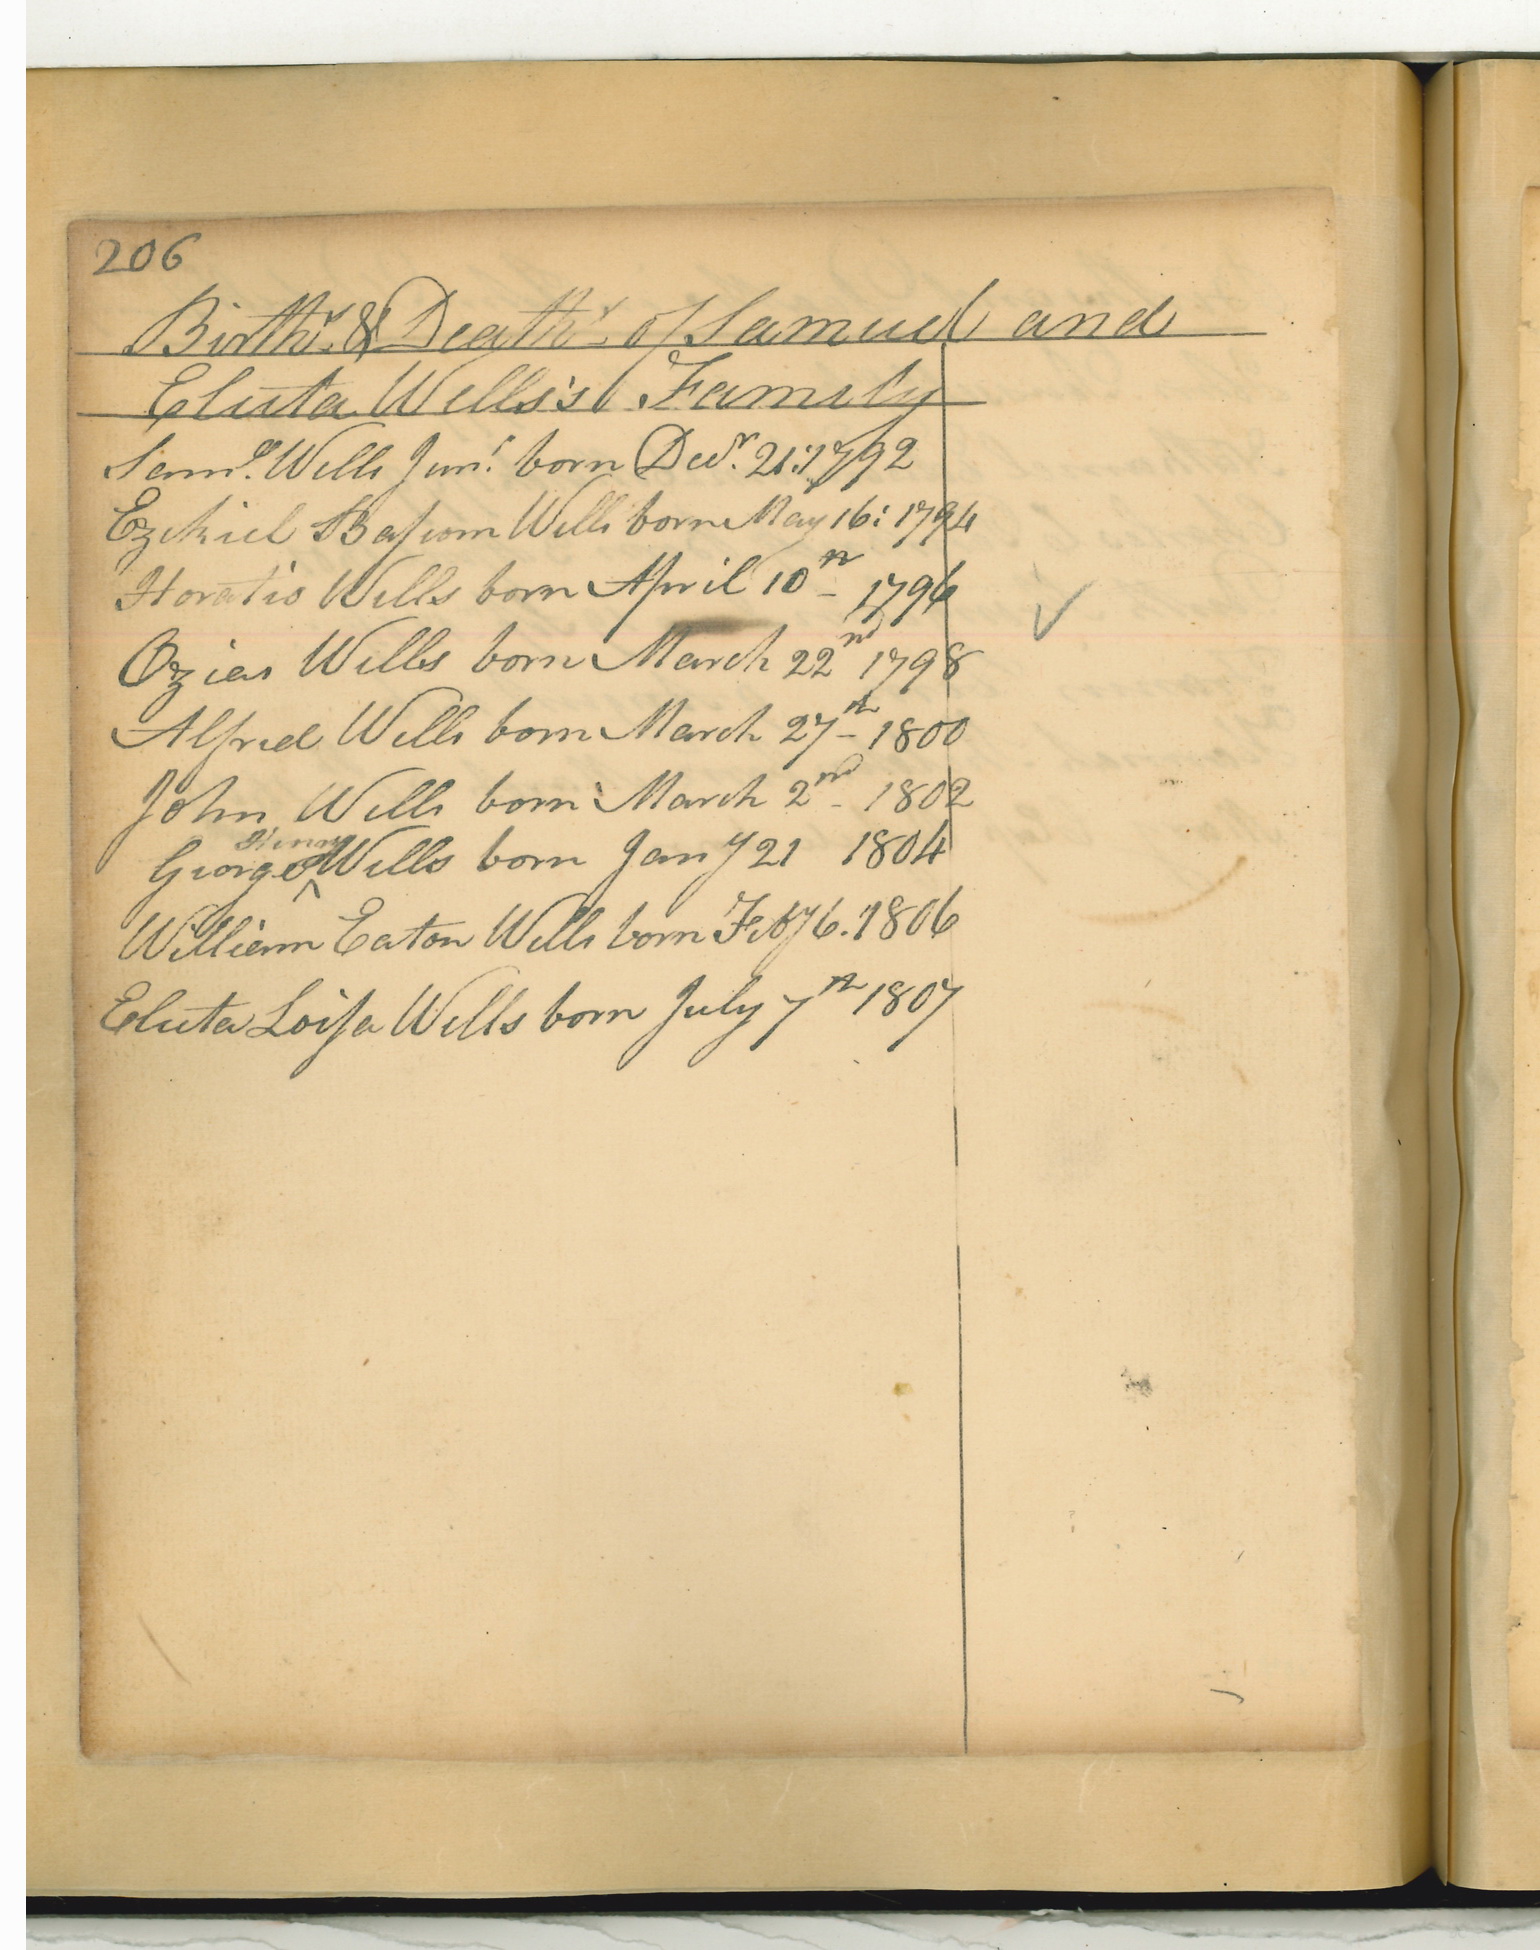 206
Births & Deaths of Samuel and
Eluta Wells's Family
Saml. Wells Junr. born Decr. 21: 1792
Ezekiel Baſcom Wells born May 16: 1794
Horatio Wells born April 10th 1796
Ozias Wells born March 22nd 1798
Alfred Wells born March 27th 1800
John Wells born March 2nd 1802
George Henry Wells born Jany 21 1804
William Eaton Wells born Feby 6. 1806
Eluta Loiſa Wells born July 7th 1807